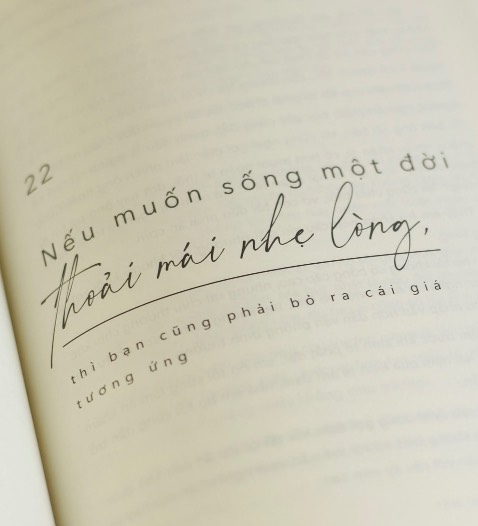 22
Nếu muốn sống một đời
thoải mái nhẹ lòng,
thì bạn cũng phải bỏ ra cái giá
tương ứng